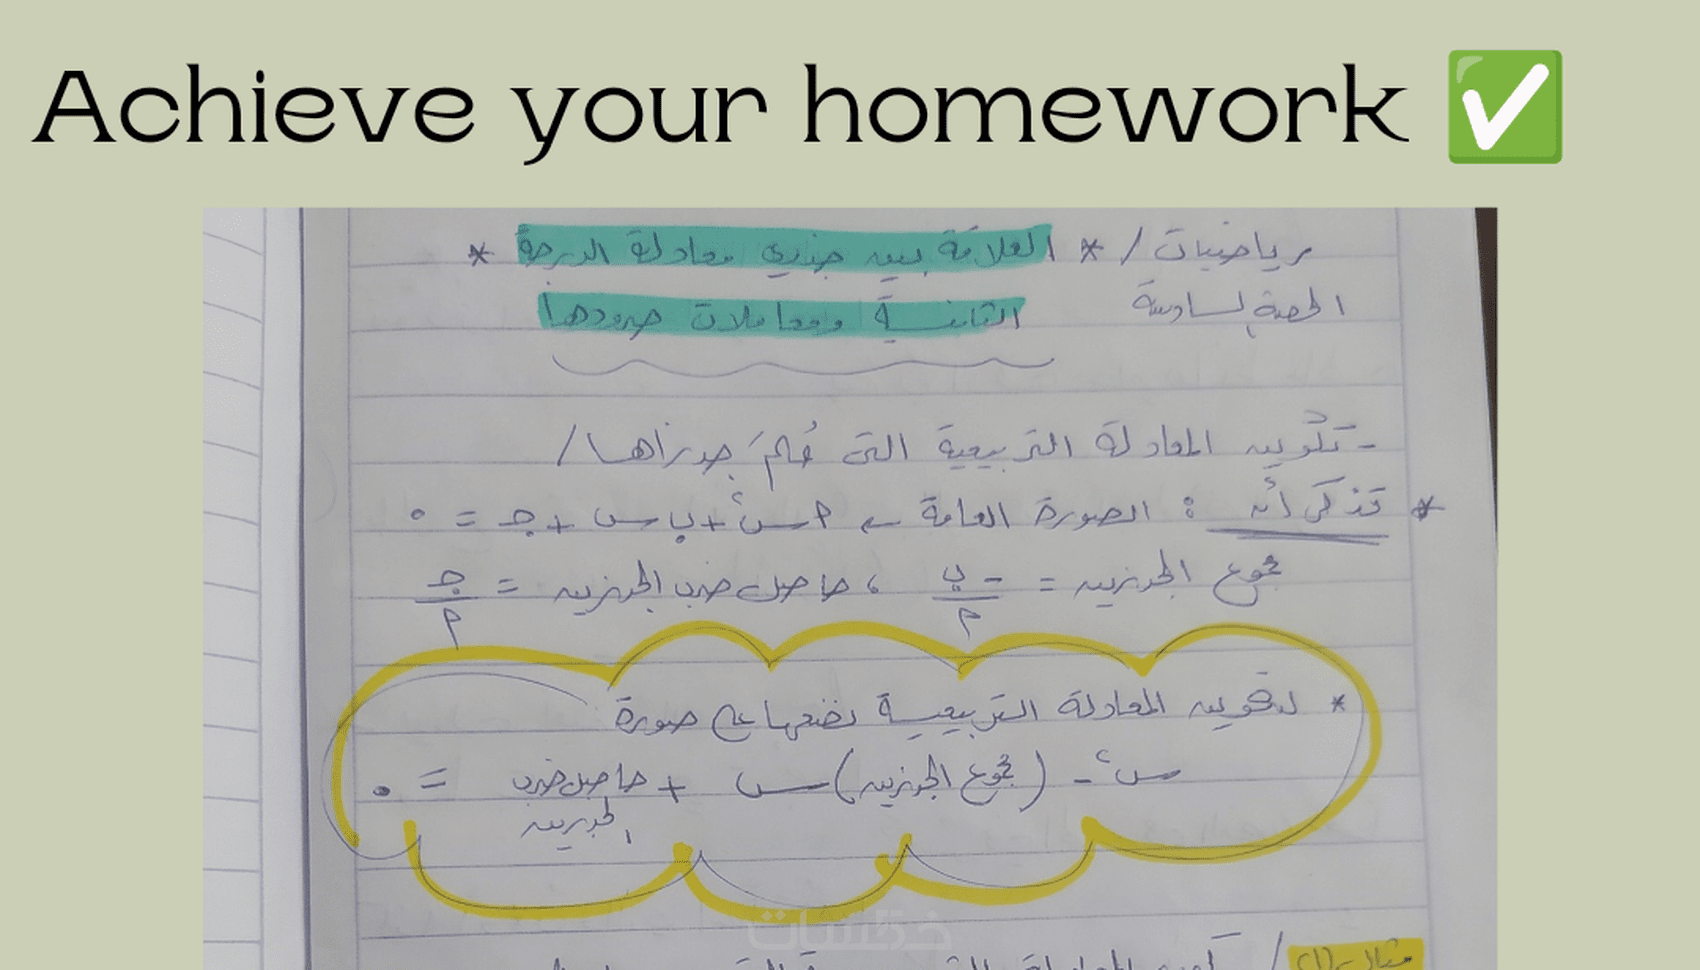 Achieve your homework ✅
رياضيات / * العلاقة بين جذري معادلة الدرجة *
الحصة السادسة الثانية ومعاملات حدودها
- تكوين المعادلة التربيعية التى عُلِمَ جذراها /
* تذكر أن : الصورة العامة ← ٢س٢ + ب س + جـ = ٠
مجموع الجذرين = -ب/٢ ، حاصل ضرب الجذرين = جـ/٢
* لتكوين المعادلة التربيعية نضعها على صورة
س٢ - (مجموع الجذرين) س + حاصل ضرب الجذرين = ٠
خمسات
مثال (١) /